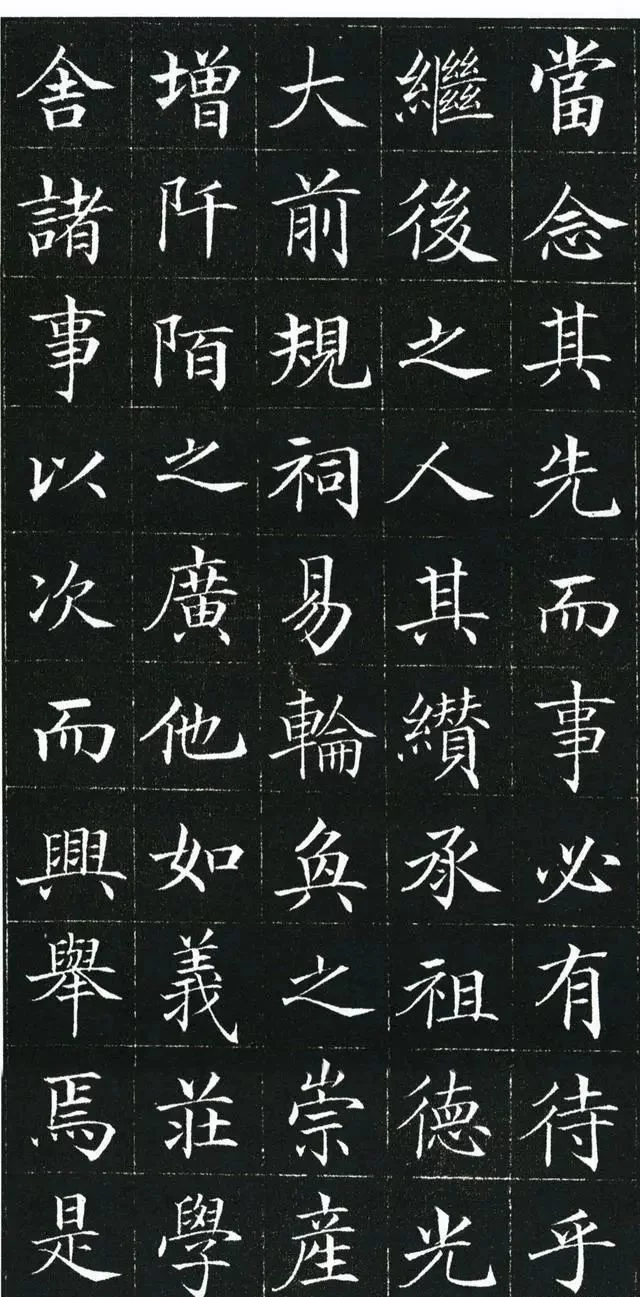 當念其先而事必有待乎
繼後之人其纘承祖德光
大前規祠易輪奐之崇産
增阡陌之廣他如義莊學
舍諸事以次而興舉焉是